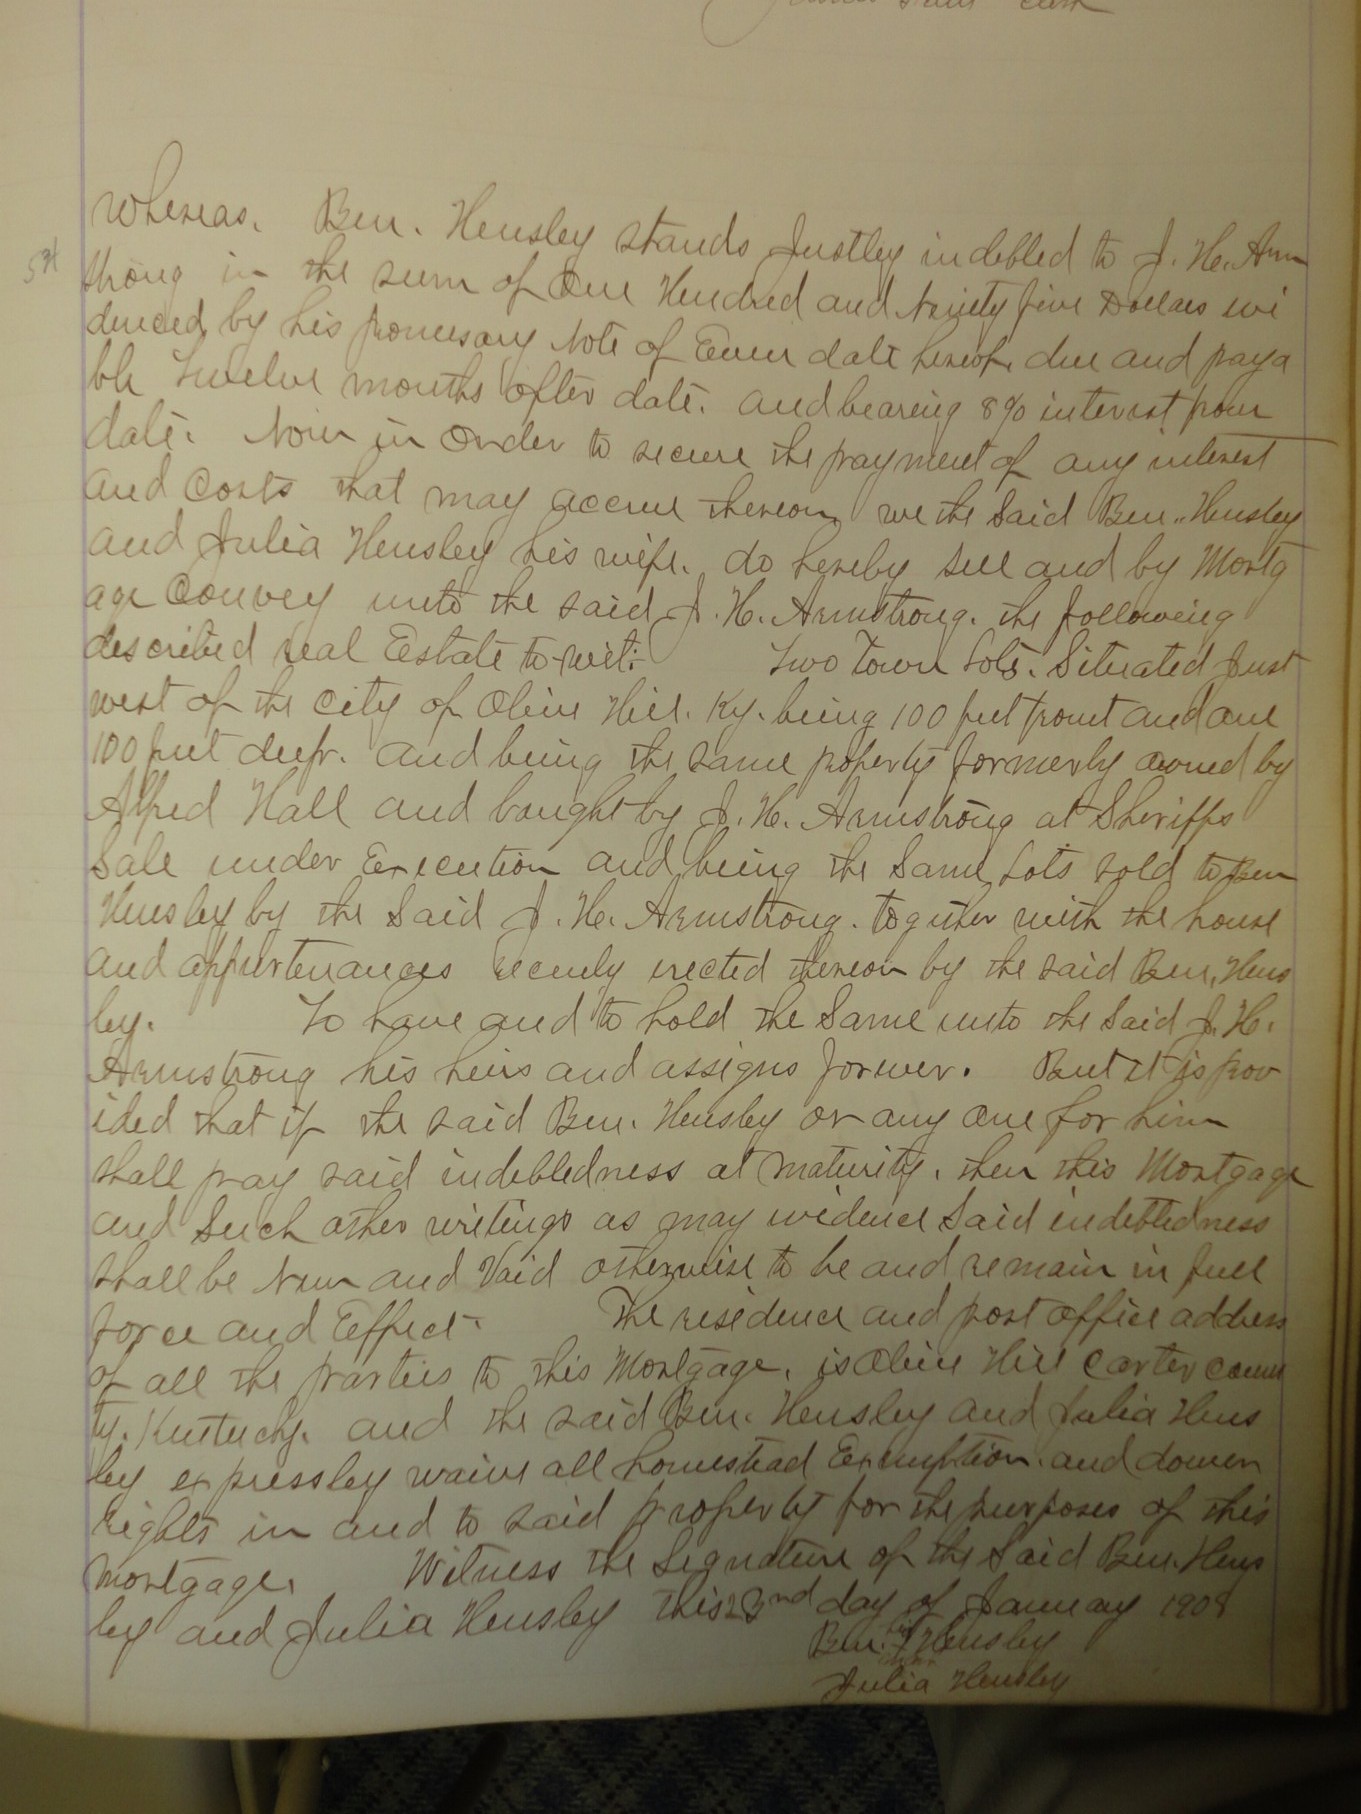 Clerk
Whereas. Ben. Hensley stands Justley indebted to J. H. Arm
strong in the sum of One Hundred and Ninety five Dollars evi
denced by his promissary Note of Even date hereof, due and paya
ble Twelve months after date. and bearing 8% interest from
date. Now in Order to secure the payment of any interest
and Costs that may accrue thereon we the Said Ben. Hensley
and Julia Hensley his wife. do hereby sell and by Mortg
age Convey unto the said J. H. Armstrong. the following
described real Estate to-wit:- Two Town Lots. Situated Just
west of the City of Olive Hill. Ky. being 100 feet front and one
100 feet deep. and being the same property formerly owned by
Alfred Hall and bought by J. H. Armstrong at Sheriffs
Sale under Execution and being the Same Lots sold to Ben
Hensley by the Said J. H. Armstrong. together with the house
and appurtenances recenly erected thereon by the said Ben. Hens
ley. To have and to hold the Same unto the Said J. H.
Armstrong his heirs and assigns forever. But it is prov
ided that if the said Ben. Hensley or any one for him
shall pay said indebtedness at maturity, then this Mortgage
and Such other writings as may evidence Said indebtedness
shall be Null and Void otherwise to be and remain in full
force and Effect. The residence and post office address
of all the parties to this Mortgage, is Olive Hill Carter Coun
ty. Kentucky. and the said Ben. Hensley and Julia Hens
ley expressley waive all homestead Exemption. and dower
rights in and to said property for the purposes of this
Mortgage. Witness the Signature of the Said Ben. Hens
ley and Julia Hensley This 23nd day of January 1908
Ben. his X Hensley
mark
Julia Hensley